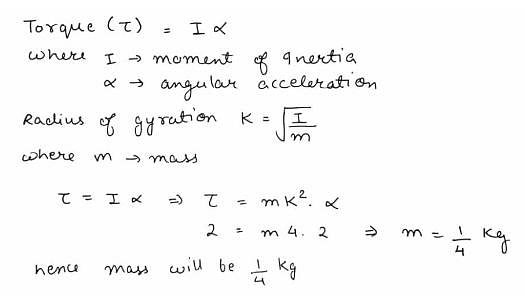 Torque (τ) = I α
where I → moment of Inertia
α → angular acceleration
Radius of gyration K = √(I/m)
where m → mass
τ = I α ⇒ τ = m K². α
2 = m 4. 2 ⇒ m = 1/4 Kg
hence mass will be 1/4 Kg